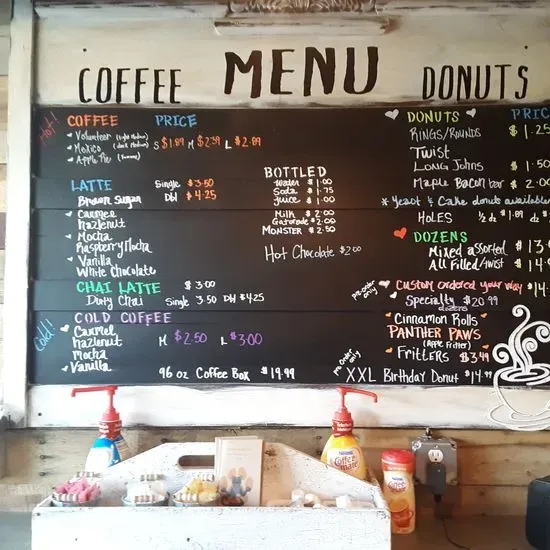 COFFEE MENU DONUTS
Hot!
COFFEE PRICE
Volunteer (Light Medium)
Mexico (dark Medium) S $1.89 M $2.39 L $2.89
Apple Pie
LATTE Single $3.50
Brown Sugar Dbl $4.25
Carmel
hazlenut
Mocha
Raspberry Mocha
Vanilla
White Chocolate
CHAI LATTE $3.00
Dirty Chai Single 3.50 Dbl $4.25
Cold!
COLD COFFEE
Carmel
hazlenut
mocha
Vanilla
M $2.50 L $3.00
96 oz Coffee Box $19.99
BOTTLED
Water $1.00
Soda $1.75
Juice $1.00
Milk $2.00
Gatorade $2.00
MONSTER $2.50
Hot Chocolate $2.00
DONUTS PRIC
RINGS/ROUNDS $1.25
Twist
LONG JOHNS $1.50
Maple Bacon bar $2.0
* Yeast & Cake donuts available
HOLES ½ dz $1.89 d
DOZENS
Mixed assorted $13.
All Filled/twist $14.
pre-order only
Custom ordered your way $14.
Specialty $20.99
dozens
Cinnamon Rolls
PANTHER PAWS
(Apple Fritter)
Fritters $3.49
pre order only
XXL Birthday Donut $14.99
Coffee mate